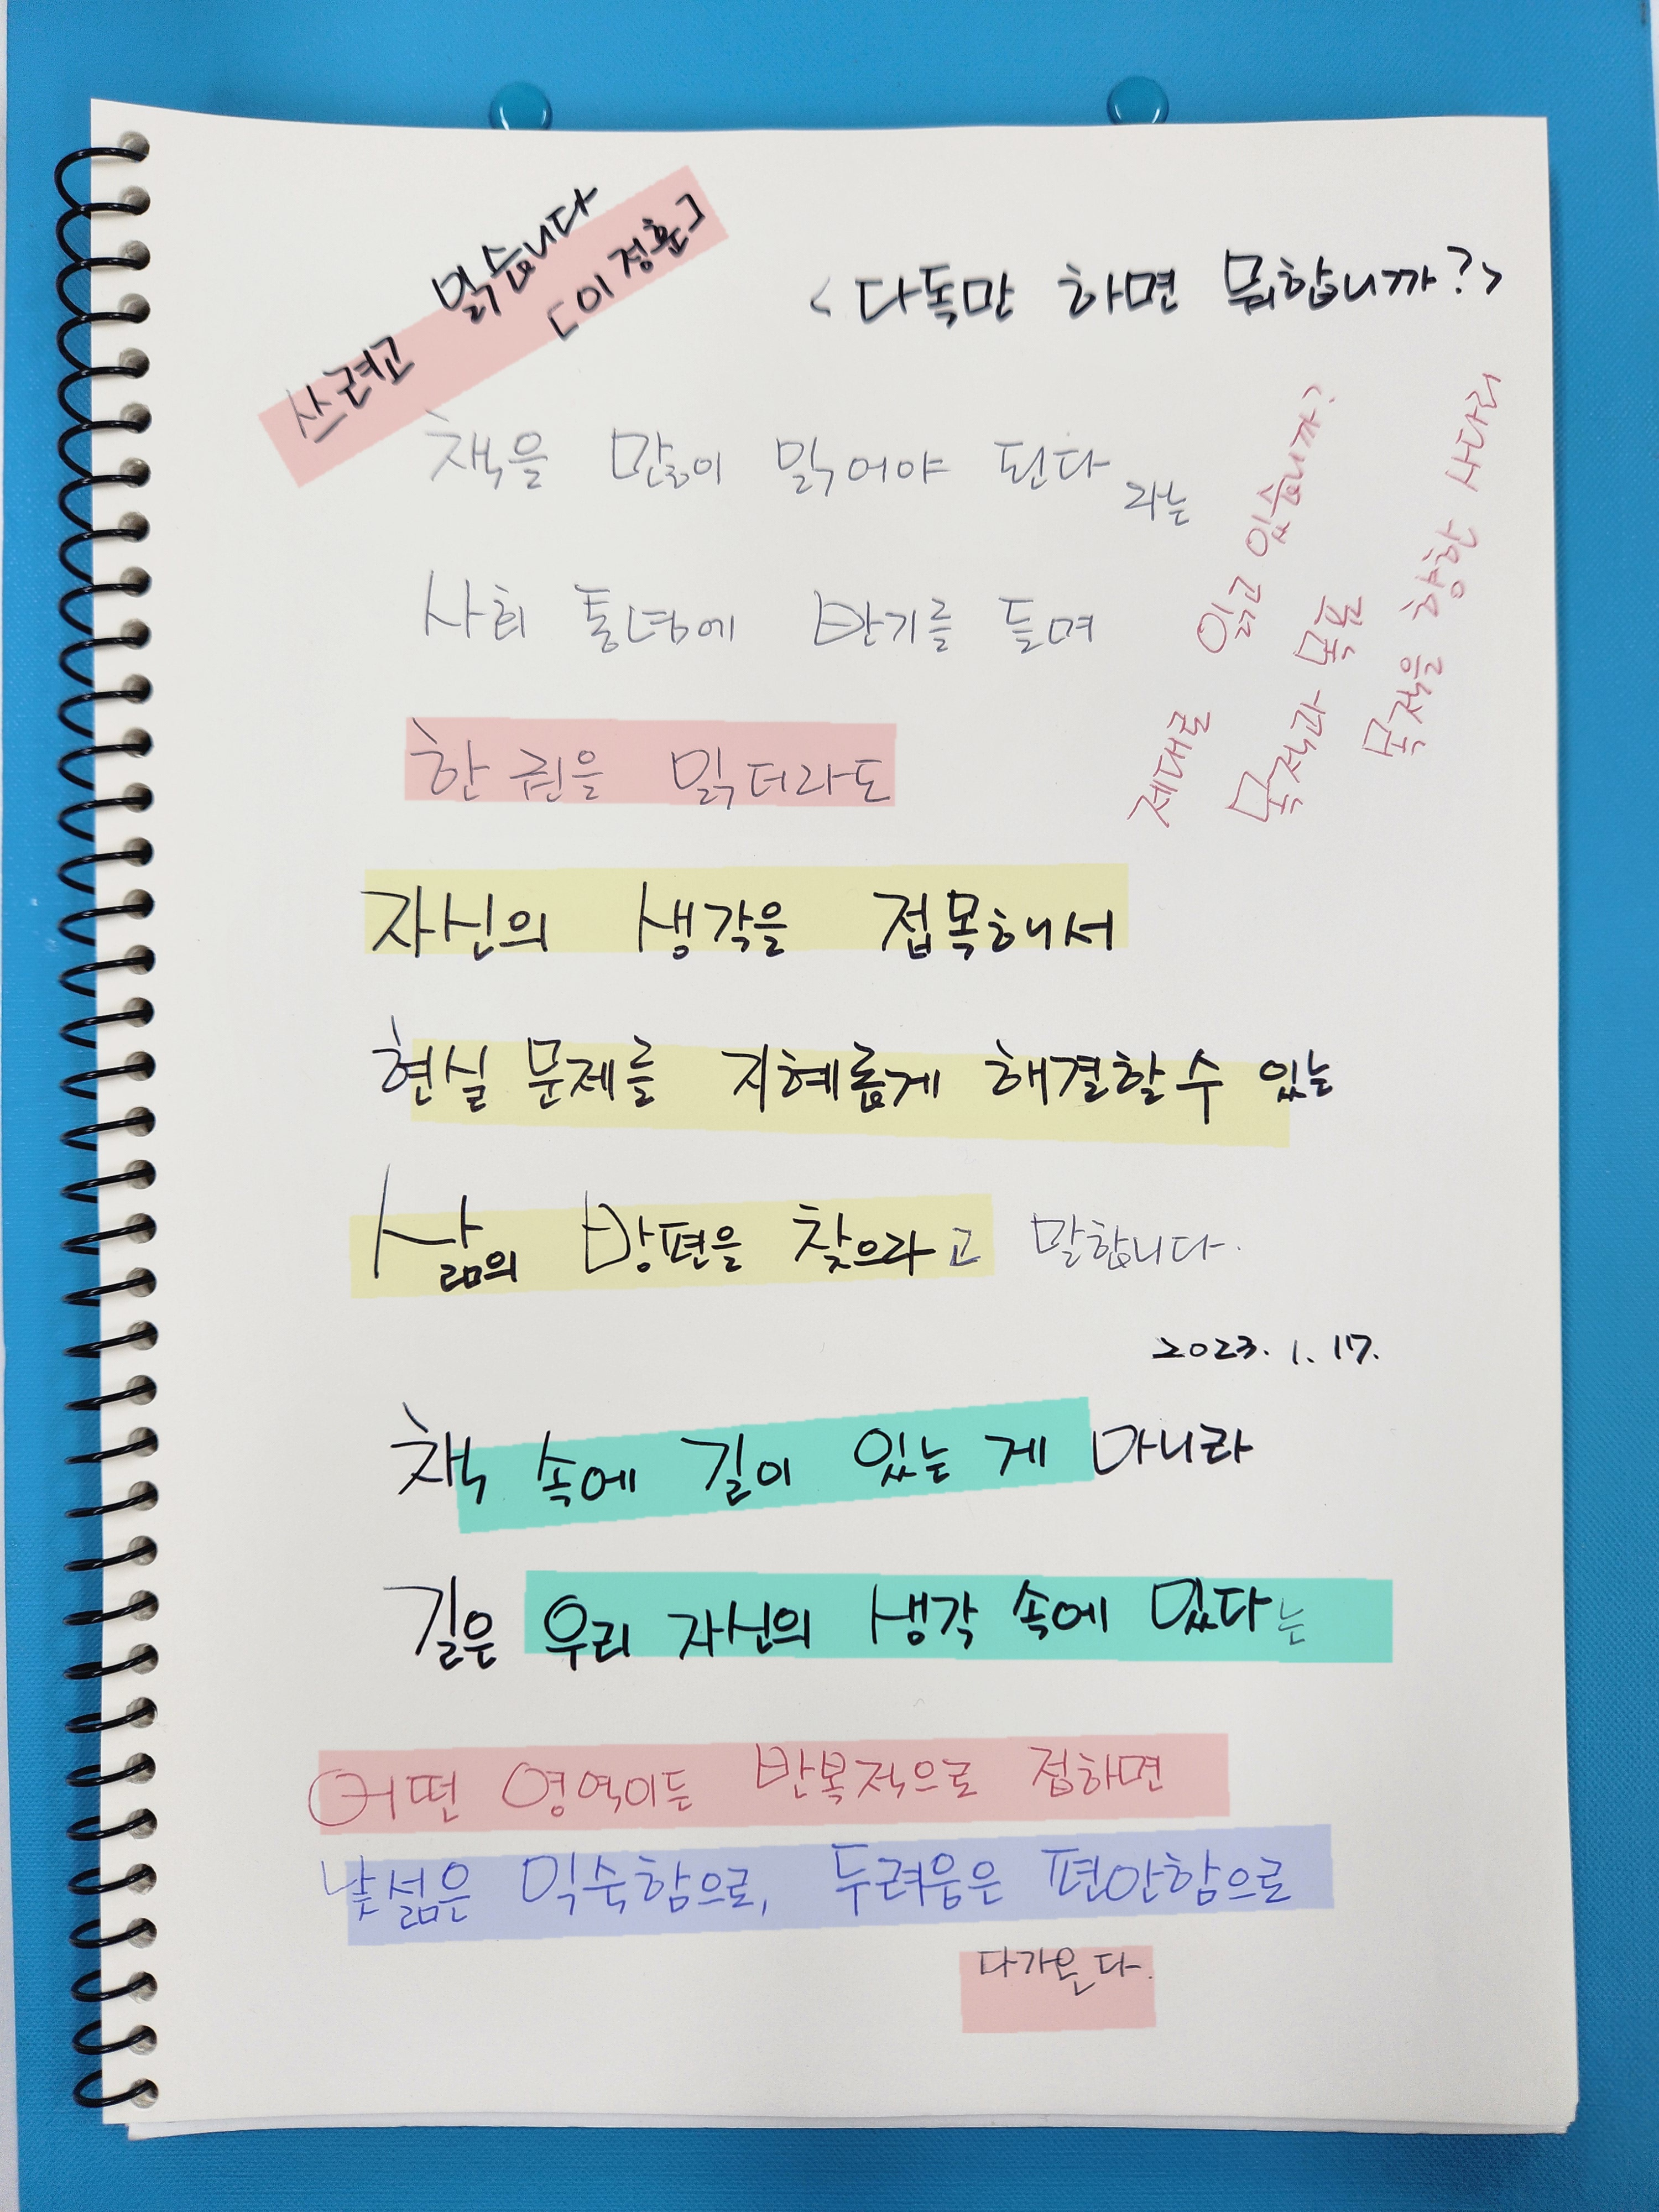 쓰려고 읽습니다
[이정훈]
<다독만 하면 뭐합니까?>
책을 많이 읽어야 된다 라는
사회 통념에 반기를 들며
한 권을 읽더라도
제대로 읽고 있습니까?
목적과 목표
목적을 향한 사다리
자신의 생각을 접목해서
현실 문제를 지혜롭게 해결할 수 있는
삶의 방편을 찾으라고 말합니다.
2023. 1. 17.
책 속에 길이 있는 게 아니라
길은 우리 자신의 생각 속에 있다는
어떤 영역이든 반복적으로 접하면
낯섦은 익숙함으로, 두려움은 편안함으로
다가온다.